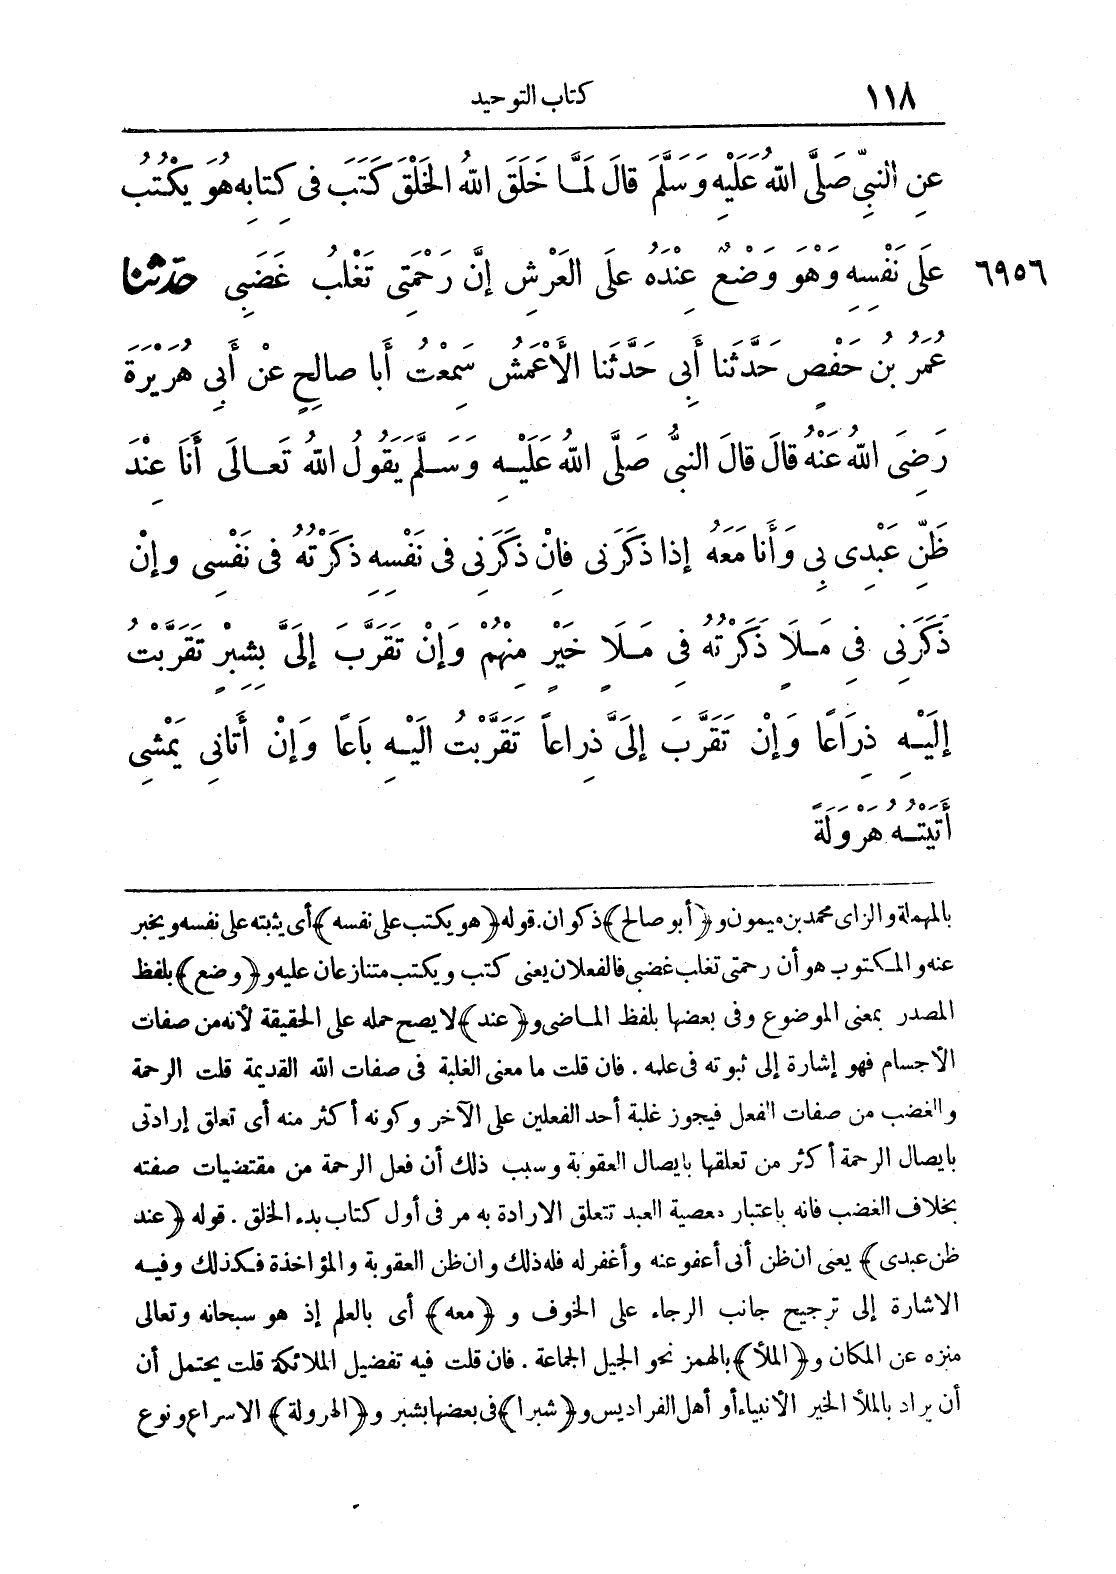 ١١٨
كتاب التوحيد
عَنِ النبيِّ صَلَّى اللهُ عَلَيْهِ وَسَلَّمَ قالَ لَمَّا خَلَقَ اللهُ الخَلْقَ كَتَبَ فى كِتابِهِ هُوَ يَكْتُبُ
عَلَى نَفْسِهِ وَهْوَ وَضْعٌ عِنْدَهُ عَلَى العَرْشِ إنَّ رَحْمَتِى تَغْلِبُ غَضَبِى حدثنا
٦٩٥٦
عُمَرُ بْنُ حَفْصٍ حَدَّثَنا أَبِى حَدَّثَنا الأَعْمَشُ سَمِعْتُ أَبا صالِحٍ عَنْ أَبِى هُرَيْرَةَ
رَضِىَ اللهُ عَنْهُ قالَ قالَ النبىُّ صَلَّى اللهُ عَلَيْهِ وَسَلَّمَ يَقُولُ اللهُ تَعالَى أَنَا عِنْدَ
ظَنِّ عَبْدِى بِى وَأَنا مَعَهُ إذا ذَكَرَنِى فانْ ذَكَرَنِى فى نَفْسِهِ ذَكَرْتُهُ فى نَفْسِى وإنْ
ذَكَرَنِى فِى مَلَاٍ ذَكَرْتُهُ فِى مَلَاٍ خَيْرٍ مِنْهُمْ وَإنْ تَقَرَّبَ إلَىَّ بِشِبْرٍ تَقَرَّبْتُ
إلَيْهِ ذِرَاعًا وَإنْ تَقَرَّبَ إلَىَّ ذِراعاً تَقَرَّبْتُ الَيْهِ بَاعًا وَإنْ أَتانِى يَمْشِى
أَتَيْتُهُ هَرْوَلَةً
بالمهملة والزاى محمد بن ميمون و ﴿أبو صالح﴾ ذكوان. قوله ﴿هو يكتب على نفسه﴾ أى يثبته على نفسه ويخبر
عنه والمكتوب هو أن رحمتى تغلب غضبى فالفعلان يعنى كتب ويكتب متنازعان عليه و ﴿وضع﴾ بلفظ
المصدر بمعنى الموضوع وفى بعضها بلفظ الماضى و ﴿عند﴾ لا يصح حمله على الحقيقة لأنه من صفات
الأجسام فهو إشارة إلى ثبوته فى علمه . فان قلت ما معنى الغلبة فى صفات الله القديمة قلت الرحمة
والغضب من صفات الفعل فيجوز غلبة أحد الفعلين على الآخر وكونه أكثر منه أى تعلق إرادتى
بايصال الرحمة أكثر من تعلقها بايصال العقوبة وسبب ذلك أن فعل الرحمة من مقتضيات صفته
بخلاف الغضب فانه باعتبار معصية العبد تتعلق الارادة به مر فى أول كتاب بدء الخلق . قوله ﴿عند
ظن عبدى﴾ يعنى ان ظن أنى أعفو عنه وأغفر له فله ذلك وان ظن العقوبة والمؤاخذة فكذلك وفيه
الاشارة إلى ترجيح جانب الرجاء على الخوف و ﴿معه﴾ أى بالعلم إذ هو سبحانه وتعالى
منزه عن المكان و ﴿الملأ﴾ بالهمز نحو الجبل الجماعة . فان قلت فيه تفضيل الملائكة قلت يحتمل أن
أن يراد بالملأ الخير الأنبياء أو أهل الفراديس و ﴿شبرا﴾ فى بعضها بشبر و ﴿الهرولة﴾ الاسراع ونوع